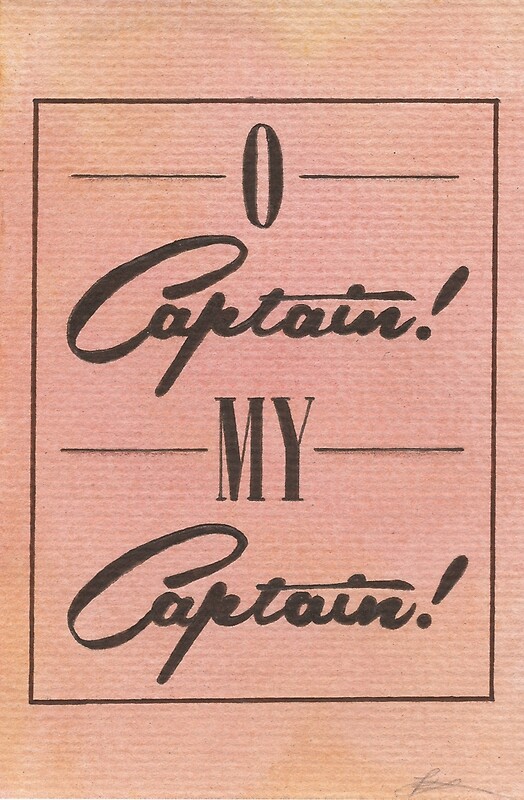 O
Captain!
MY
Captain!